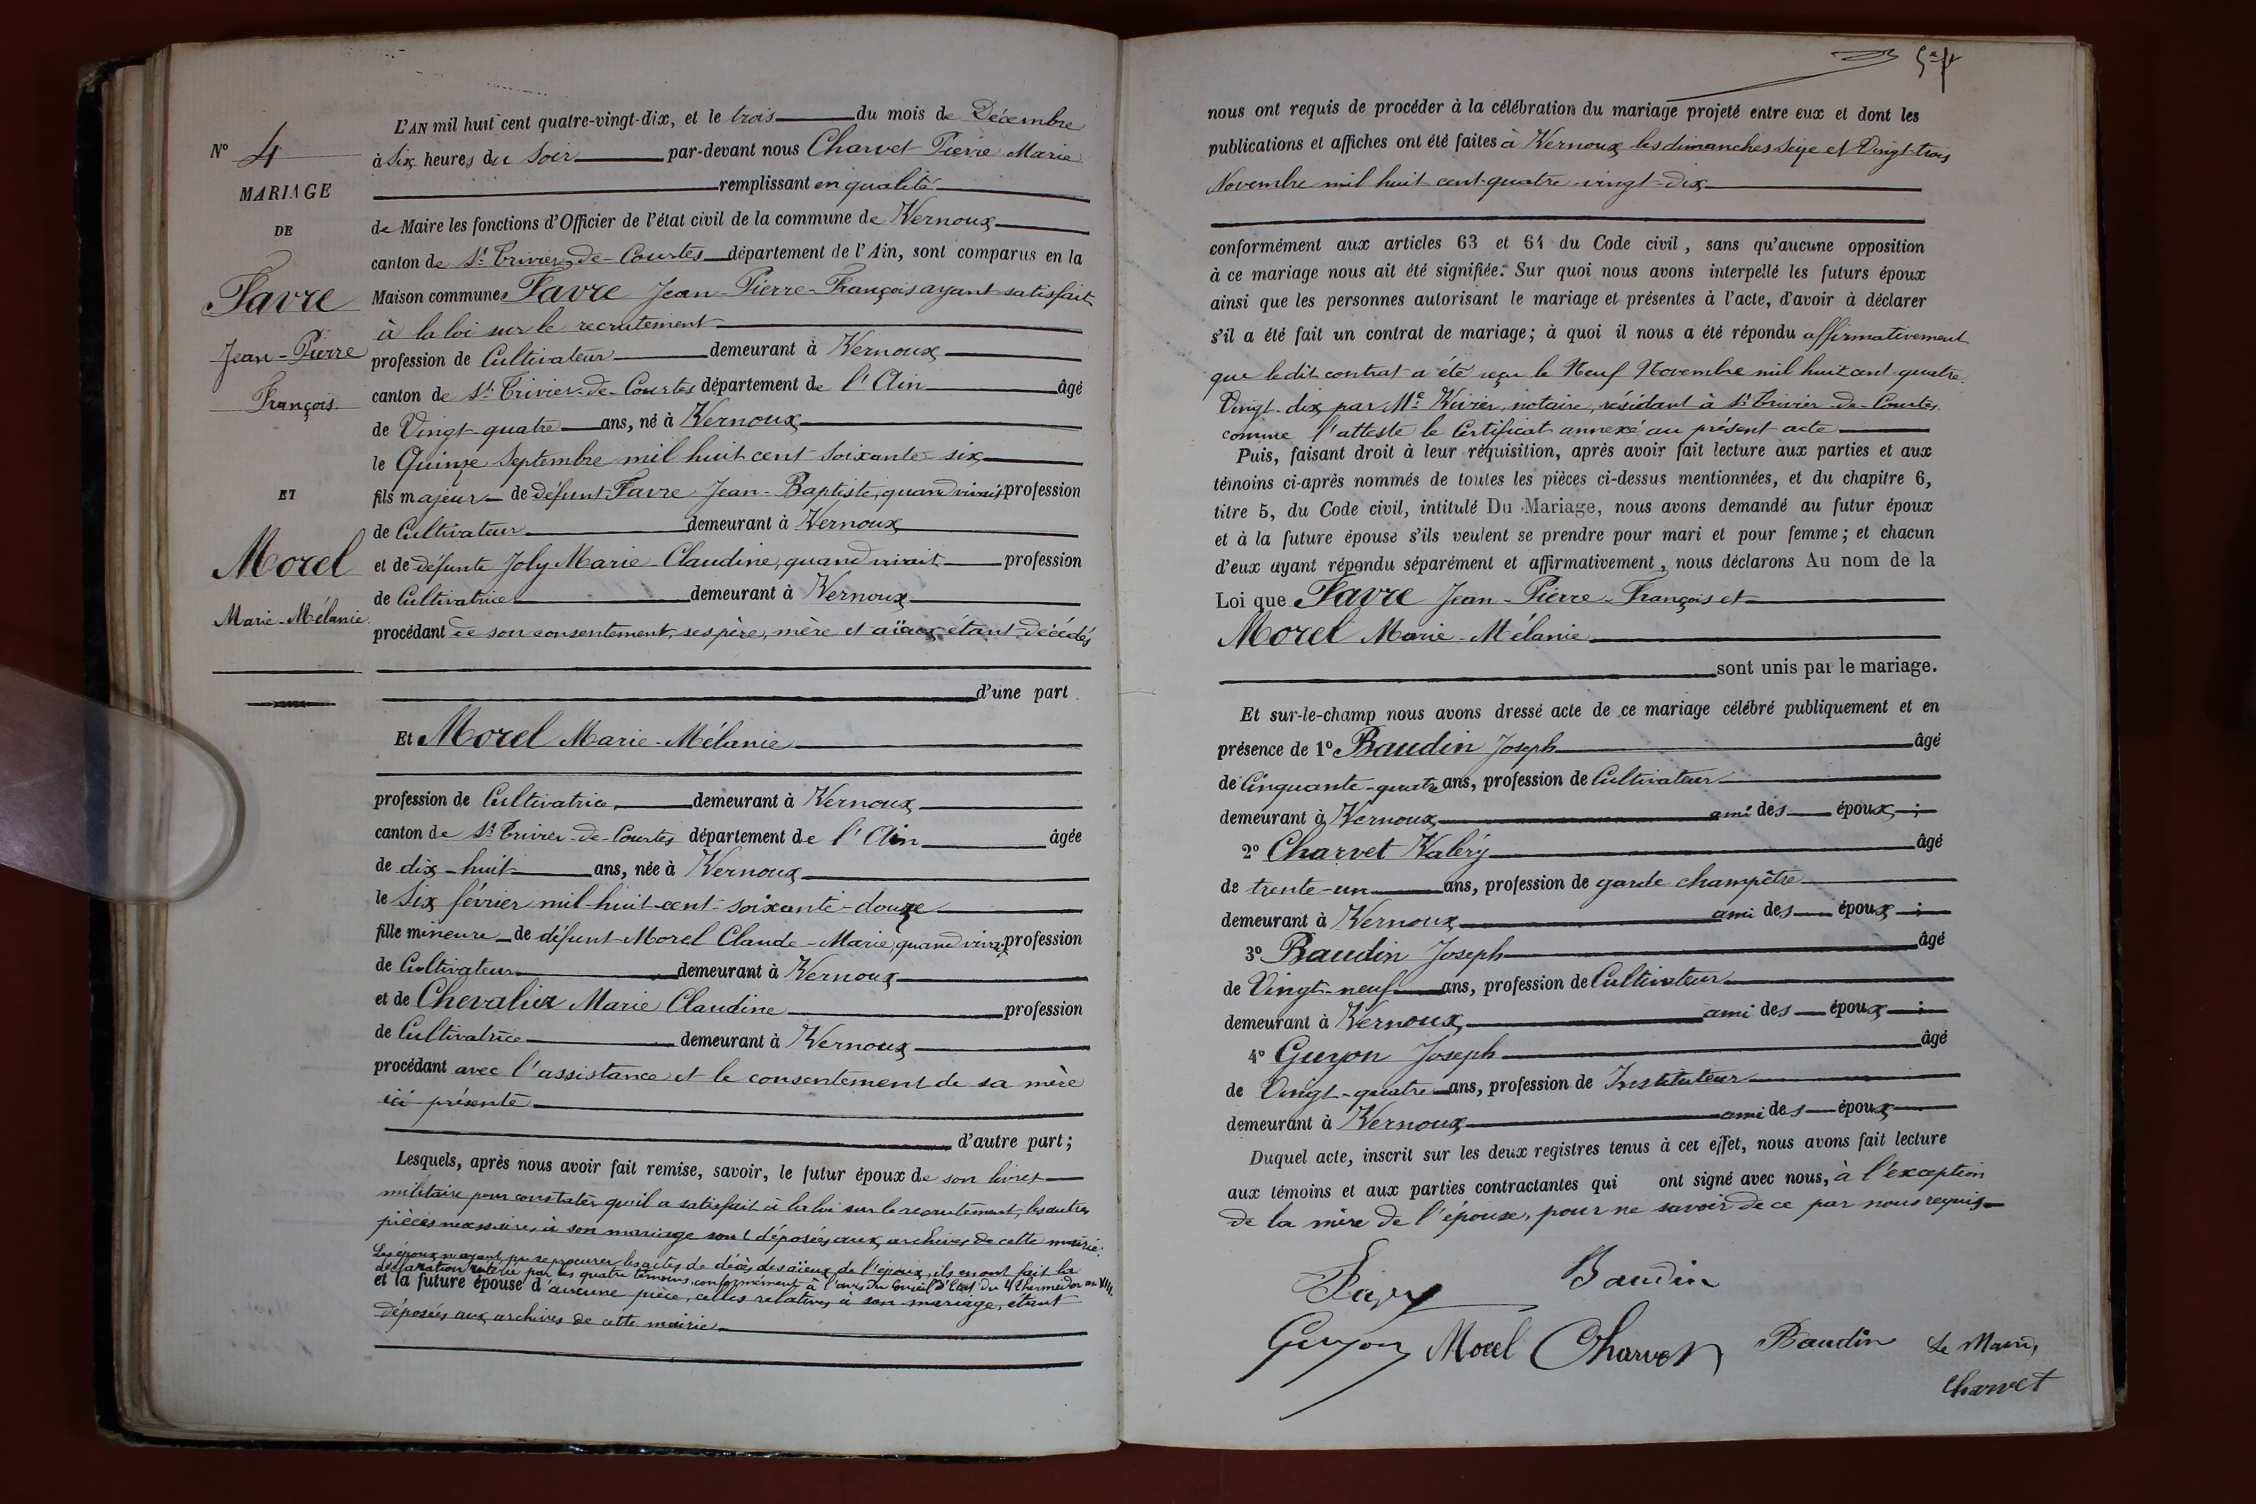 N° 4
MARIAGE
DE
Favre
Jean-Pierre
François
ET
Morel
Marie-Mélanie
L'AN mil huit cent quatre-vingt-dix, et le trois du mois de Décembre
à six heures du soir par-devant nous Charvet Pierre Marie
remplissant en qualité
de Maire les fonctions d'Officier de l'état civil de la commune de Vernoux
canton de St Trivier-de-Courtes département de l'Ain, sont comparus en la
Maison commune Favre Jean-Pierre-François ayant satisfait
à la loi sur le recrutement
profession de Cultivateur demeurant à Vernoux
canton de St Trivier-de-Courtes département de l'Ain âgé
de Vingt-quatre ans, né à Vernoux
le Quinze Septembre mil huit cent soixante-six
fils majeur de défunt Favre Jean-Baptiste, quand vivait profession
de Cultivateur demeurant à Vernoux
et de défunte Joly Marie-Claudine, quand vivait profession
de Cultivatrice demeurant à Vernoux
procédant de son consentement, ses père, mère et aïeux étant décédés
d'une part
Et Morel Marie-Mélanie
profession de Cultivatrice demeurant à Vernoux
canton de St Trivier-de-Courtes département de l'Ain âgée
de dix-huit ans, née à Vernoux
le Six février mil huit cent soixante-douze
fille mineure de défunt Morel Claude-Marie, quand vivait profession
de Cultivateur demeurant à Vernoux
et de Chevalier Marie Claudine profession
de Cultivatrice demeurant à Vernoux
procédant avec l'assistance et le consentement de sa mère
ici présente
d'autre part;
Lesquels, après nous avoir fait remise, savoir, le futur époux de son livret
militaire pour constater qu'il a satisfait à la loi sur le recrutement, les autres
pièces nécessaires à son mariage sont déposées aux archives de cette mairie.
Les époux n'ayant pu se procurer les actes de décès des aïeux de l'époux, ils en ont fait la
déclaration par les quatre témoins, conformément à l'avis du Conseil d'Etat du 4 thermidor an XIII.
et la future épouse d'aucune pièce, celles relatives à son mariage, étant
déposées aux archives de cette mairie
nous ont requis de procéder à la célébration du mariage projeté entre eux et dont les
publications et affiches ont été faites à Vernoux les dimanches seize et Vingt-trois
Novembre mil huit cent quatre-vingt-dix
conformément aux articles 63 et 64 du Code civil, sans qu'aucune opposition
à ce mariage nous ait été signifiée. Sur quoi nous avons interpellé les futurs époux
ainsi que les personnes autorisant le mariage et présentes à l'acte, d'avoir à déclarer
s'il a été fait un contrat de mariage; à quoi il nous a été répondu affirmativement
que ledit contrat a été reçu le Neuf Novembre mil huit cent quatre-
Vingt-dix par Me Vivier, notaire, résidant à St Trivier-de-Courtes
comme l'atteste le Certificat annexé au présent acte
Puis, faisant droit à leur réquisition, après avoir fait lecture aux parties et aux
témoins ci-après nommés de toutes les pièces ci-dessus mentionnées, et du chapitre 6,
titre 5, du Code civil, intitulé Du Mariage, nous avons demandé au futur époux
et à la future épouse s'ils veulent se prendre pour mari et pour femme; et chacun
d'eux ayant répondu séparément et affirmativement, nous déclarons Au nom de la
Loi que Favre Jean-Pierre-François et
Morel Marie-Mélanie
sont unis par le mariage.
Et sur-le-champ nous avons dressé acte de ce mariage célébré publiquement et en
présence de 1° Baudin Joseph âgé
de Cinquante-quatre ans, profession de Cultivateur
demeurant à Vernoux ami des époux;
2° Charvet Valéry âgé
de trente-un ans, profession de garde champêtre
demeurant à Vernoux ami des époux;
3° Baudin Joseph âgé
de Vingt-neuf ans, profession de Cultivateur
demeurant à Vernoux ami des époux;
4° Guyon Joseph âgé
de Vingt-quatre ans, profession de Instituteur
demeurant à Vernoux ami des époux
Duquel acte, inscrit sur les deux registres tenus à cet effet, nous avons fait lecture
aux témoins et aux parties contractantes qui ont signé avec nous, à l'exception
de la mère de l'épouse, pour ne savoir de ce par nous requis
Baudin
Guyon Morel Charvet Baudin Le Maire,
Charvet